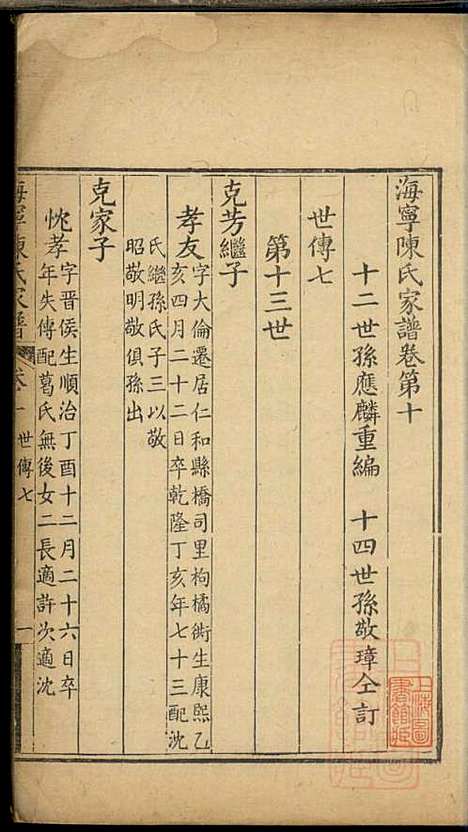 海寧陳氏家譜卷第十
十二世孫應麟重編　十四世孫敬璋仝訂
世傳七
第十三世
克芳繼子
孝友字大倫遷居仁和縣橋司里枸橘衖生康熙乙
亥四月二十二日卒乾隆丁亥年七十三配沈
氏繼孫氏子三以敬
昭敬明敬俱孫出
克家子
忱孝字晉侯生順治丁酉十二月二十六日卒
年失傳配葛氏無後女二長適許次適沈
海寧陳氏家譜
世傳七
一
上海圖書館藏